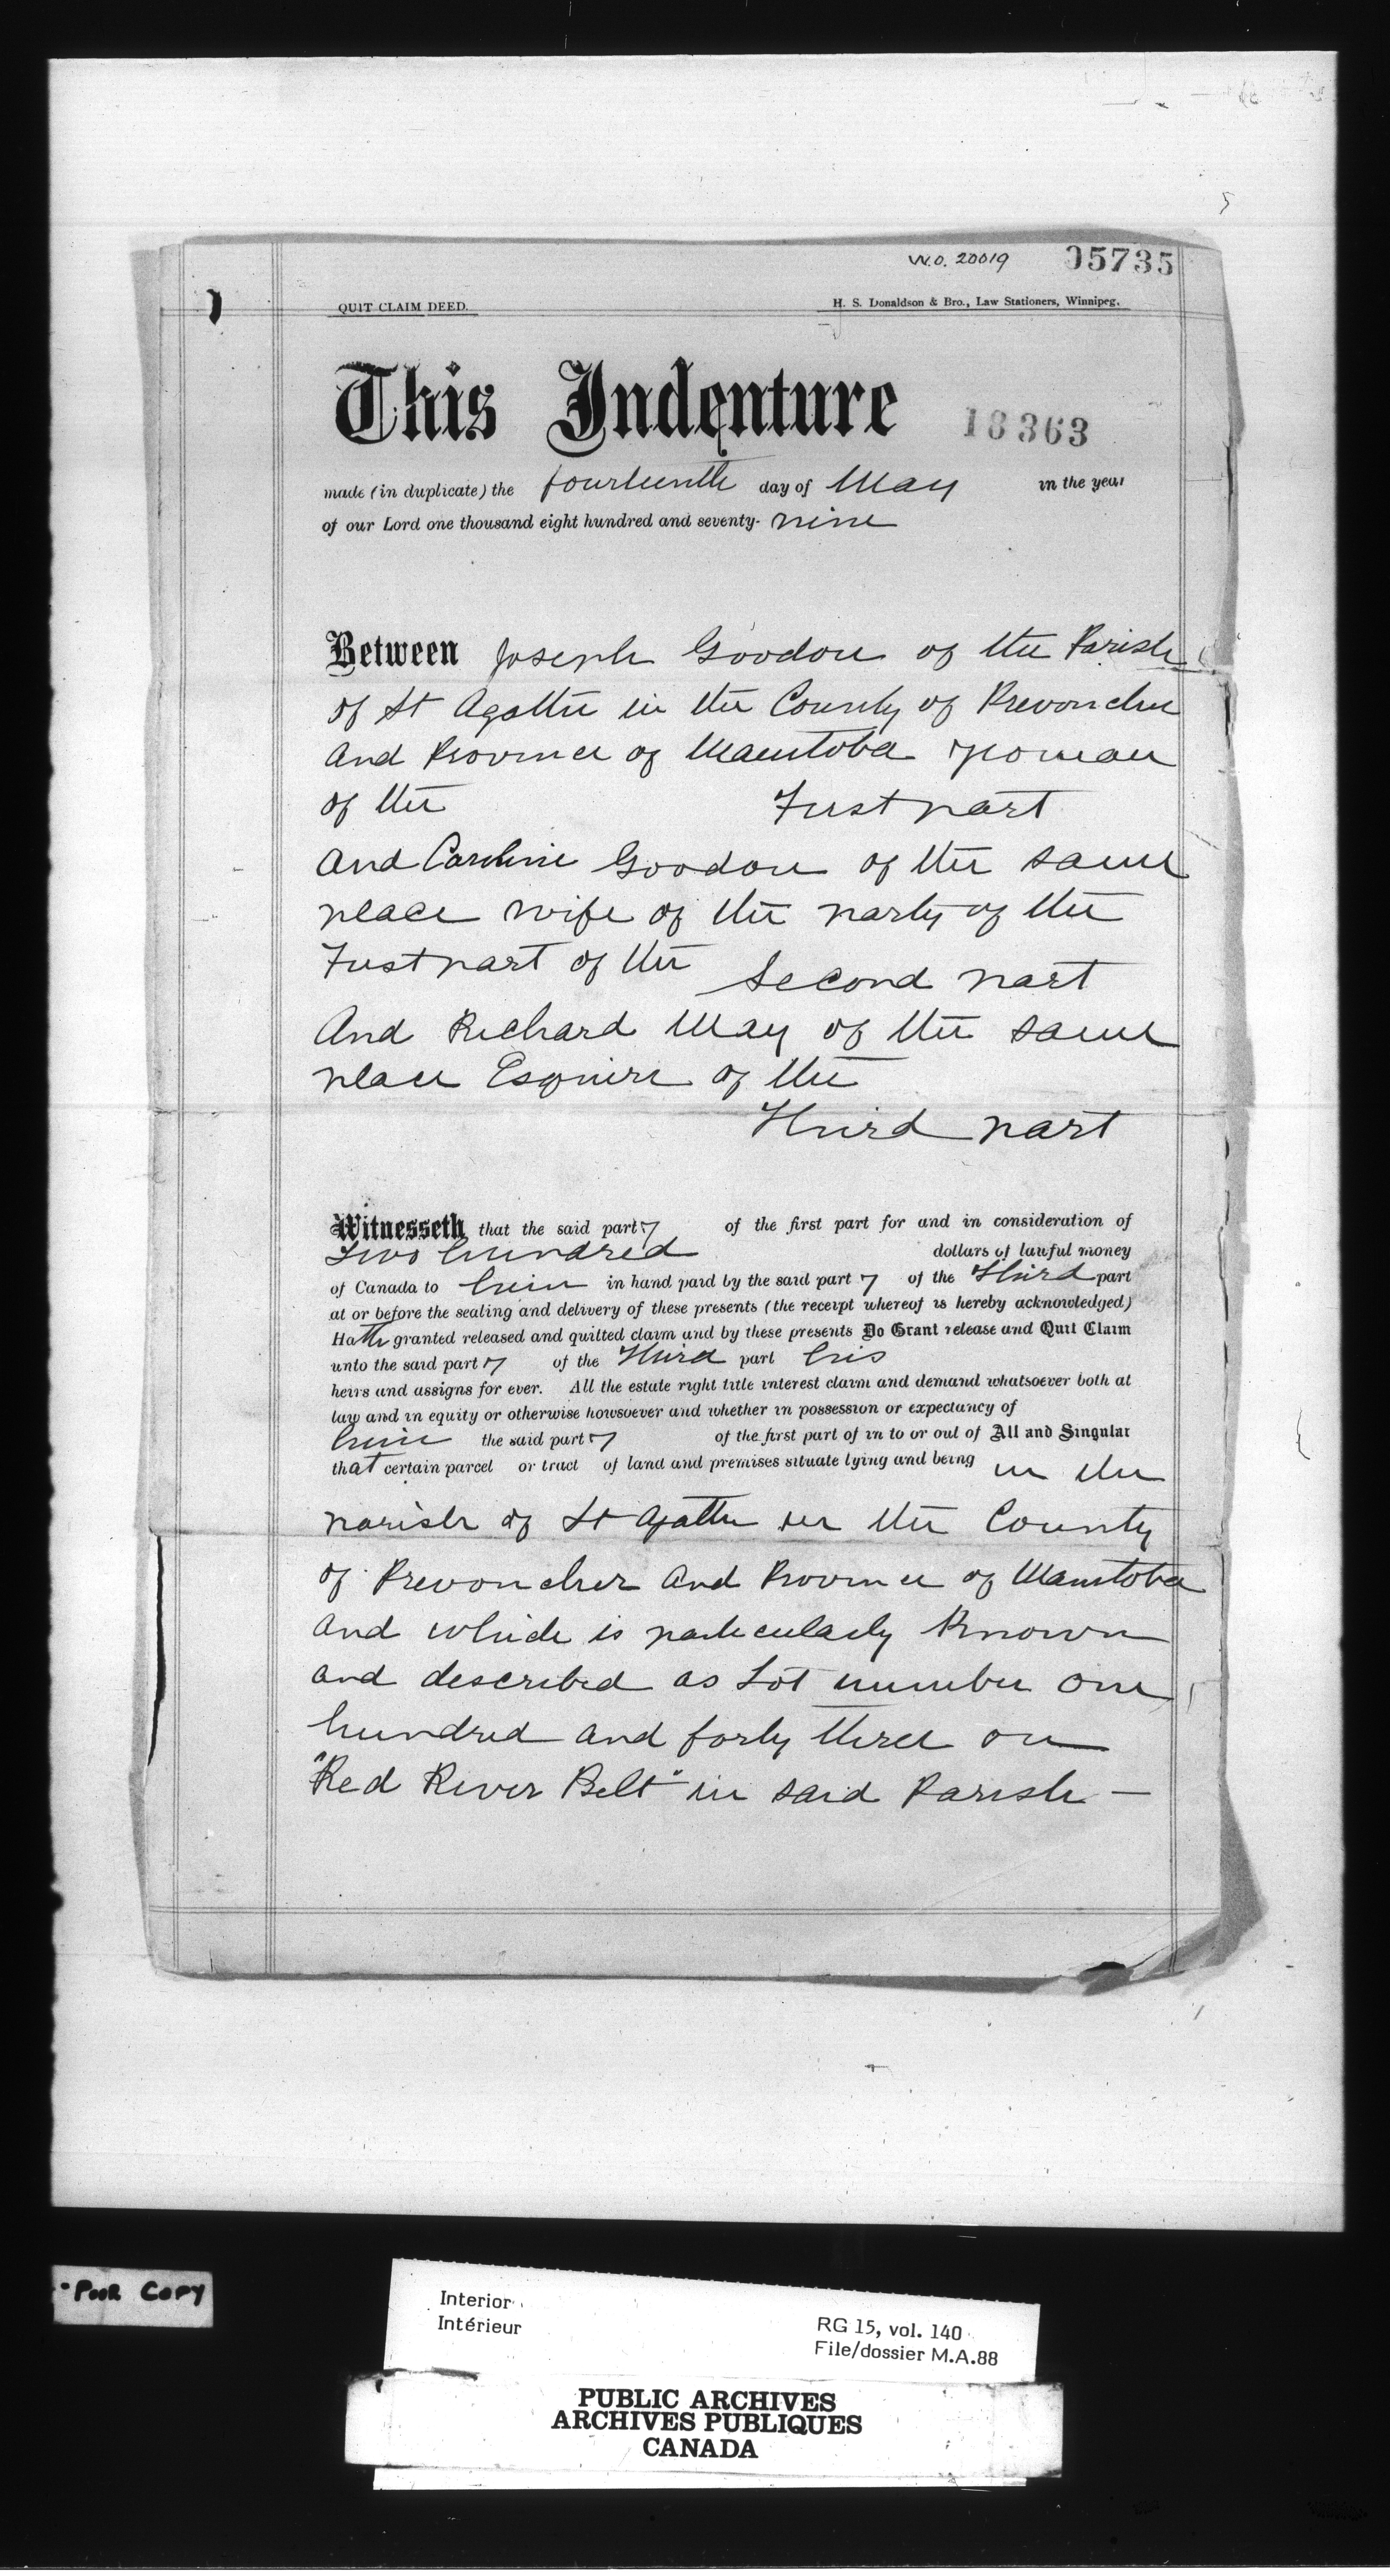 W.O. 20019 05735
QUIT CLAIM DEED. H. S. Donaldson & Bro., Law Stationers, Winnipeg.
This Indenture 18363
made (in duplicate) the fourteenth day of May in the year
of our Lord one thousand eight hundred and seventy- nine
Between Joseph Goodon of the Parish
of St Agathe in the County of Provencher
and Province of Manitoba yeoman
of the First part
And Caroline Goodon of the same
place wife of the party of the
First part of the Second part
And Richard May of the same
place Esquire of the
Third part
Witnesseth that the said party of the first part for and in consideration of
Two hundred dollars of lawful money
of Canada to him in hand paid by the said party of the Third part
at or before the sealing and delivery of these presents (the receipt whereof is hereby acknowledged)
Hath granted released and quitted claim and by these presents Do Grant release and Quit Claim
unto the said party of the Third part his
heirs and assigns for ever. All the estate right title interest claim and demand whatsoever both at
law and in equity or otherwise howsoever and whether in possession or expectancy of
him the said party of the first part of in to or out of All and Singular
that certain parcel or tract of land and premises situate lying and being in the
parish of St Agathe in the County
of Provencher and Province of Manitoba
and which is particularly known
and described as Lot number one
hundred and forty three on
"Red River Belt" in said Parish —
Poor Copy
Interior
Intérieur
RG 15, vol. 140
File/dossier M.A.88
PUBLIC ARCHIVES
ARCHIVES PUBLIQUES
CANADA